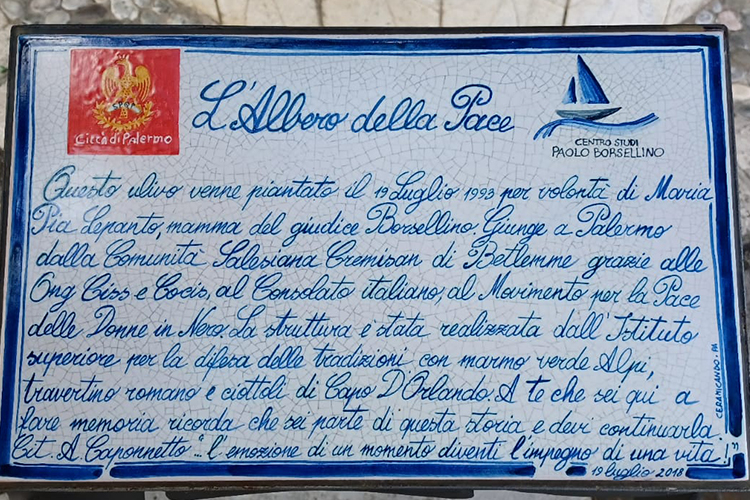 Città di Palermo
L'Albero della Pace
CENTRO STUDI
PAOLO BORSELLINO
Questo ulivo venne piantato il 19 Luglio 1993 per volontà di Maria
Pia Lepanto, mamma del giudice Borsellino. Giunge a Palermo
dalla Comunità Salesiana Cremisan di Betlemme grazie alle
Ong Ciss e Cocis, al Consolato italiano, al Movimento per la Pace
delle Donne in Nero. La struttura è stata realizzata dall'Istituto
superiore per la difesa delle tradizioni con marmo verde Alpi,
travertino romano e ciottoli di Capo D'Orlando. A te che sei qui a
fare memoria ricorda che sei parte di questa storia e devi continuarla
Cit. A. Caponnetto "...l'emozione di un momento diventi l'impegno di una vita!"
19 luglio 2018
CERAMICANDO - PA